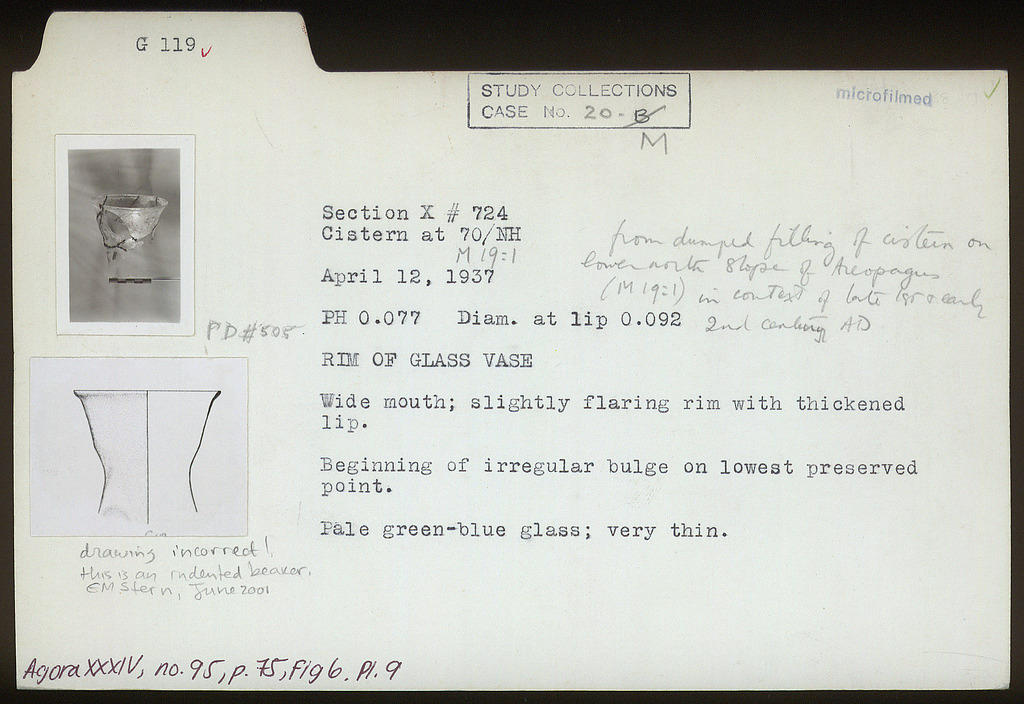 G 119
STUDY COLLECTIONS
CASE No. 20-B
M
microfilmed
Section X # 724
Cistern at 70/NH
M 19:1
April 12, 1937
from dumped filling of cistern on
lower north slope of Areopagus
(M 19:1) in context of late 1st & early
2nd century AD
PH 0.077 Diam. at lip 0.092
PD#505
RIM OF GLASS VASE
Wide mouth; slightly flaring rim with thickened
lip.
Beginning of irregular bulge on lowest preserved
point.
Pale green-blue glass; very thin.
drawing incorrect!
this is an indented beaker.
EM Stern, June 2001
Agora XXXIV, no. 95, p. 75, Fig 6. Pl. 9